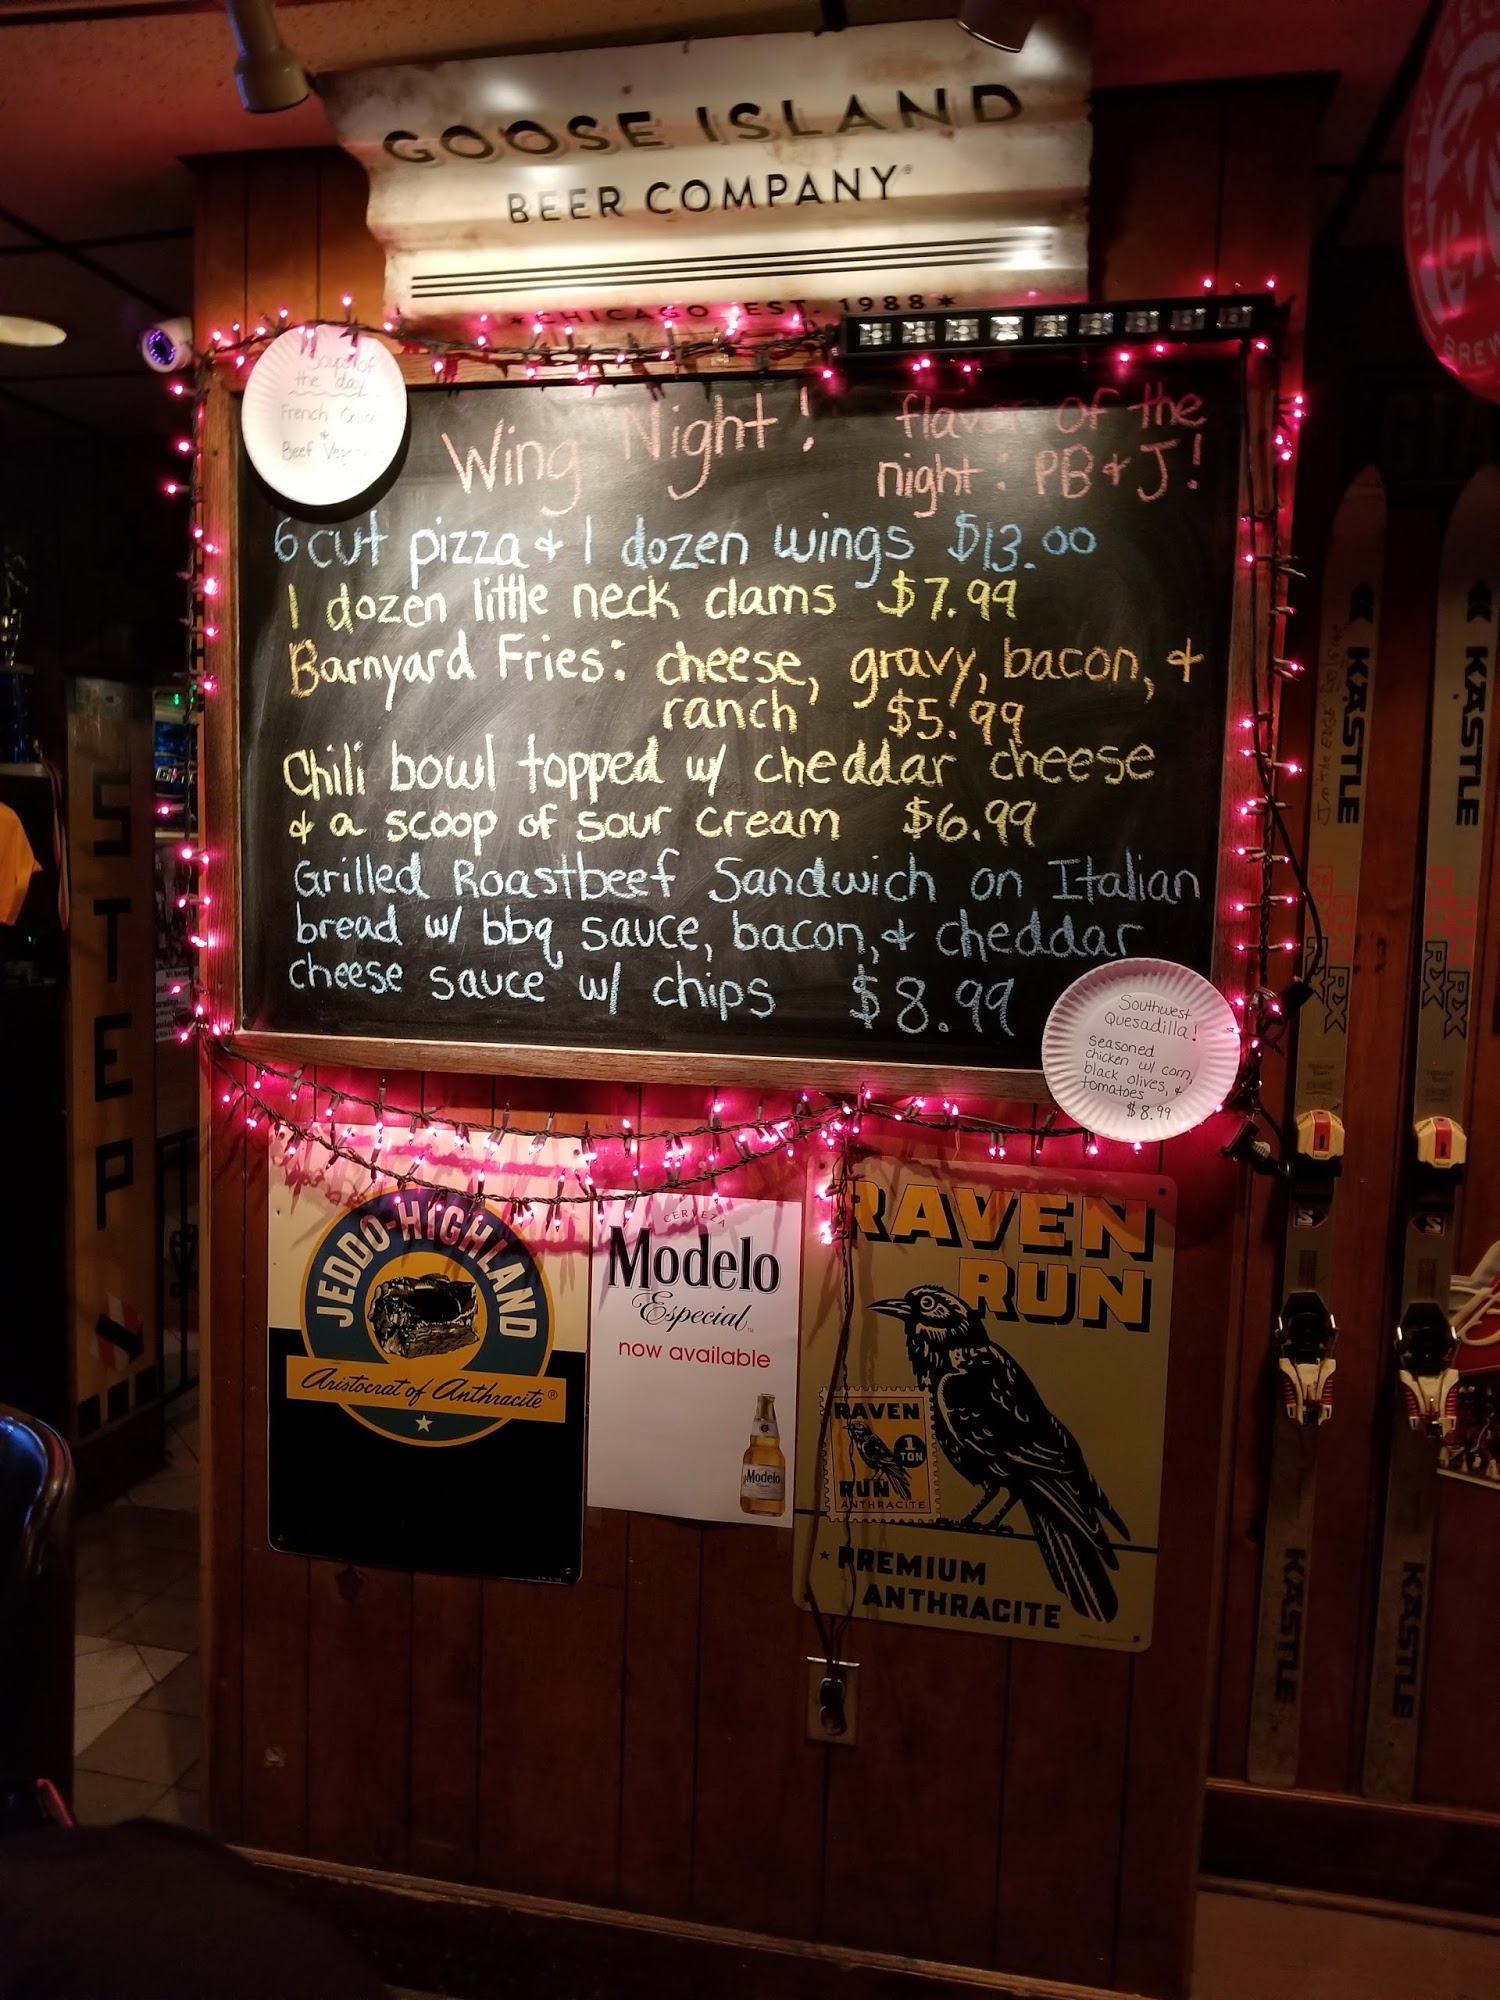 GOOSE ISLAND
BEER COMPANY®
★CHICAGO EST. 1988★
Soups of
the day
French
&
Beef
Wing Night!
flavor of the
night: PB & J!
6 cut pizza & 1 dozen wings $13.00
1 dozen little neck clams $7.99
Barnyard Fries: cheese, gravy, bacon, &
ranch $5.99
Chili bowl topped w/ cheddar cheese
& a scoop of sour cream $6.99
Grilled Roastbeef Sandwich on Italian
bread w/ bbq sauce, bacon, & cheddar
cheese sauce w/ chips $8.99
Southwest
Quesadilla!
seasoned
chicken w/ corn,
black olives, &
tomatoes
$8.99
JEDDO-HIGHLAND
Aristocrat of Anthracite®
CERVEZA
Modelo
Especial
now available
Modelo
RAVEN
RUN
RAVEN
1
TON
RUN
ANTHRACITE
★ PREMIUM
ANTHRACITE
STEP
KASTLE
KASTLE
RX
RX
KASTLE
KASTLE
NEW BEL
BREW